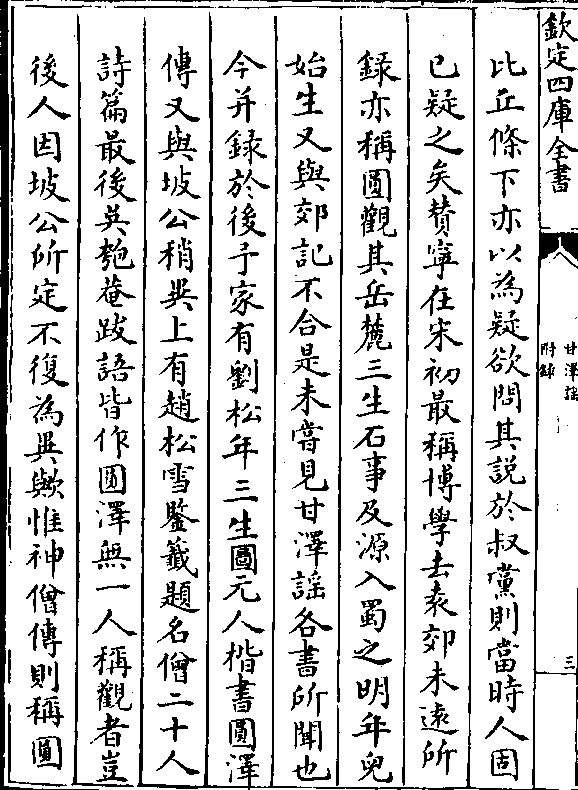 欽定四庫全書
甘澤謠
附錄
三
比丘條下亦以為疑欲問其説於叔黨則當時人固
已疑之矣賛寧在宋初最稱博學去袁郊未逺所
錄亦稱圓觀其岳麓三生石事及源入蜀之明年兒
始生又與郊記不合是未嘗見甘澤謡各書所聞也
今并録於後予家有劉松年三生圖元人楷書圓澤
傳又與坡公稍異上有趙松雪鑒籤題名僧二十人
詩篇最後吳匏菴跋語皆作圓澤無一人稱觀者豈
後人因坡公所定不復為異歟惟神僧傳則稱圓